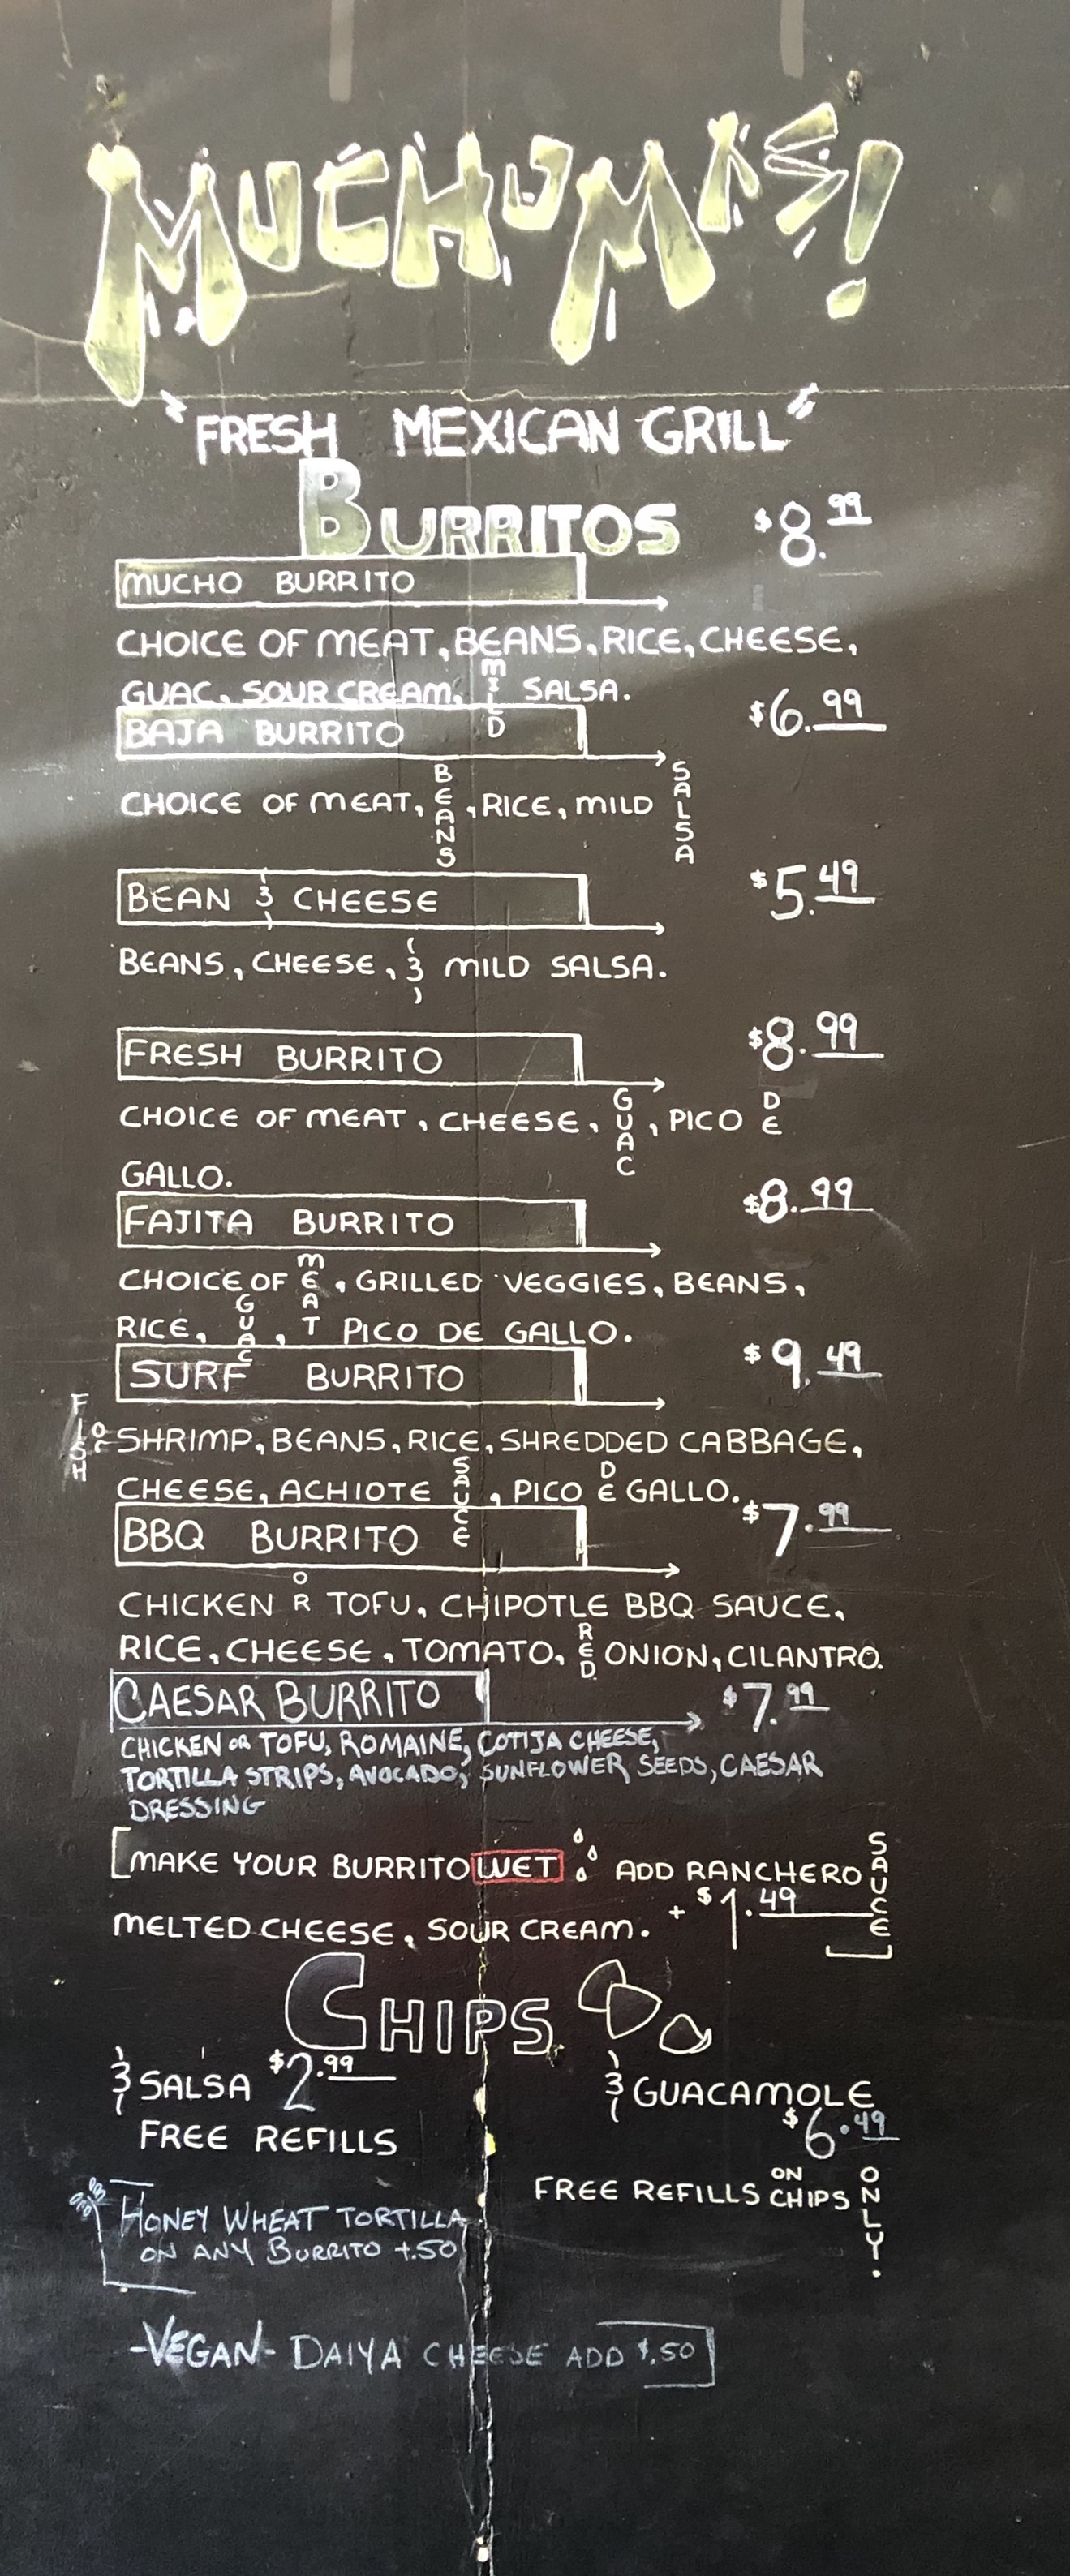 MUCHO MAS!
"FRESH MEXICAN GRILL"
BURRITOS $8.99
MUCHO BURRITO
CHOICE OF MEAT, BEANS, RICE, CHEESE,
GUAC, SOUR CREAM, MILD SALSA.
BAJA BURRITO $6.99
CHOICE OF MEAT, BEANS, RICE, MILD SALSA
BEAN & CHEESE $5.49
BEANS, CHEESE, & MILD SALSA.
FRESH BURRITO $8.99
CHOICE OF MEAT, CHEESE, GUAC, PICO DE
GALLO.
FAJITA BURRITO $8.99
CHOICE OF MEAT, GRILLED VEGGIES, BEANS,
RICE, GUAC, PICO DE GALLO.
SURF BURRITO $9.49
FISH OR SHRIMP, BEANS, RICE, SHREDDED CABBAGE,
CHEESE, ACHIOTE SAUCE, PICO DE GALLO.
BBQ BURRITO $7.99
CHICKEN OR TOFU, CHIPOTLE BBQ SAUCE,
RICE, CHEESE, TOMATO, RED ONION, CILANTRO.
CAESAR BURRITO $7.99
CHICKEN OR TOFU, ROMAINE, COTIJA CHEESE,
TORTILLA STRIPS, AVOCADO, SUNFLOWER SEEDS, CAESAR
DRESSING
[MAKE YOUR BURRITO WET ADD RANCHERO SAUCE
MELTED CHEESE, SOUR CREAM. + $1.49]
CHIPS
& SALSA $2.99
FREE REFILLS
& GUACAMOLE
$6.49
FREE REFILLS ON CHIPS ONLY.
HONEY WHEAT TORTILLA
ON ANY BURRITO +.50
-VEGAN- DAIYA CHEESE ADD $.50